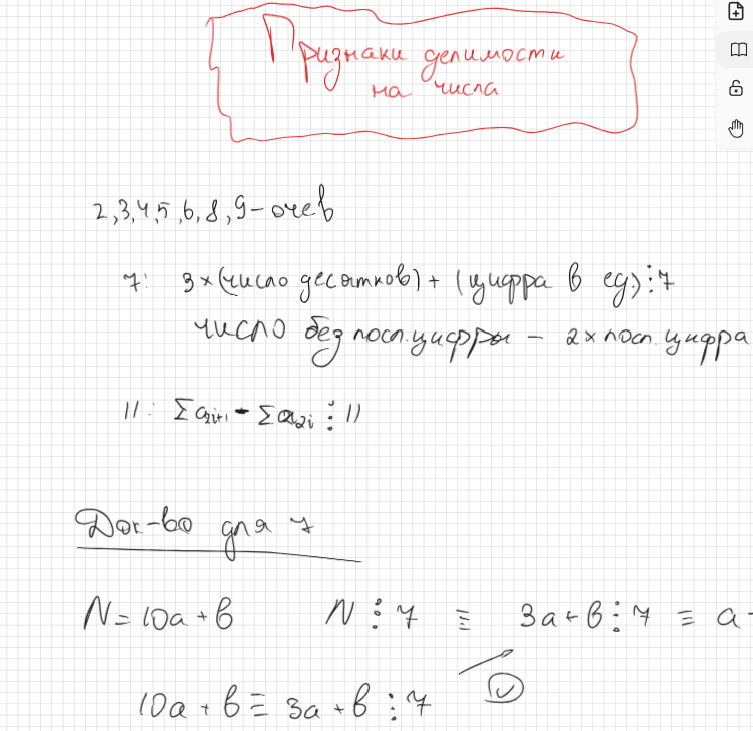 Признаки делимости
на числа
2,3,4,5,6,8,9 - очев
7: 3×(число десятков) + (цифра в ед.)⋮7
число без посл. цифры - 2× посл. цифра
11: Σa₂ᵢ₊₁ - Σa₂ᵢ ⋮ 11
Док-во для 7
N = 10a + b N ⋮ 7 ≡ 3a + b ⋮ 7 ≡ a -
10a + b ≡ 3a + b ⋮ 7